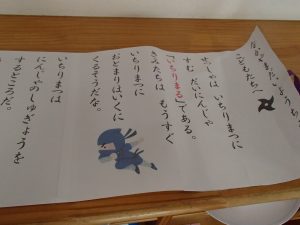 こどもたちへ
せっしゃは、いちりまつに
すむ だいにんじゃ
「いちりまる」である。
きみたちは もうすぐ
いちりまつに
おとまりほいくに
くるそうだな。
いちりまつは
にんじゃのしゅぎょうを
するところだ。